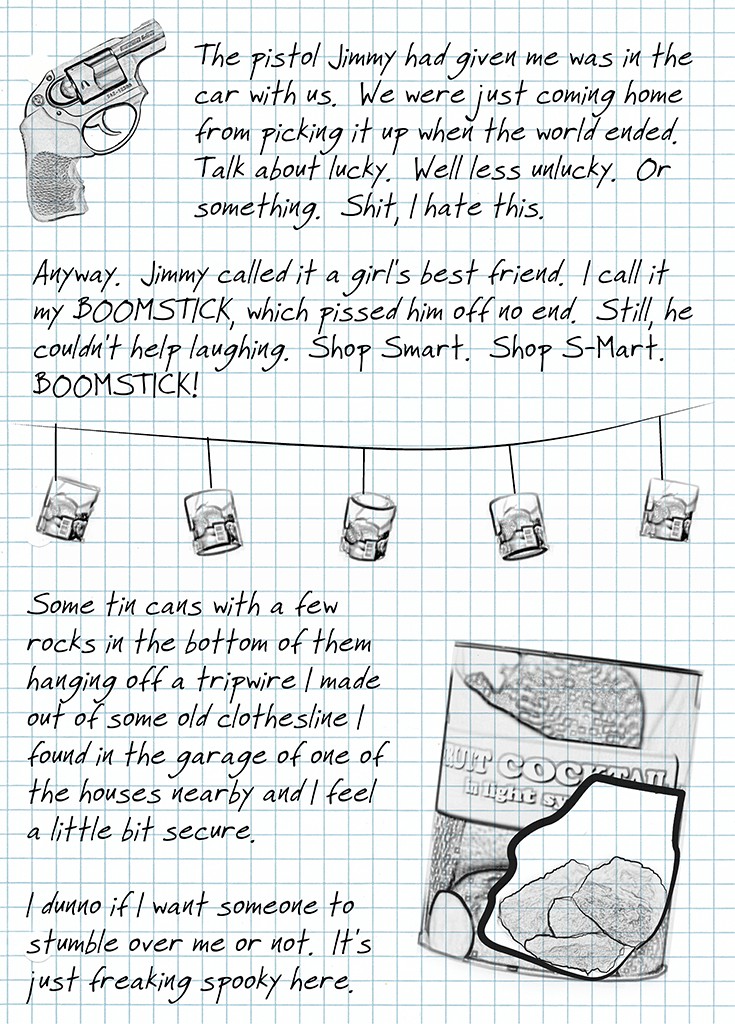 The pistol Jimmy had given me was in the
car with us. We were just coming home
from picking it up when the world ended.
Talk about lucky. Well less unlucky. Or
something. Shit, I hate this.
Anyway. Jimmy called it a girl's best friend. I call it
my BOOMSTICK, which pissed him off no end. Still, he
couldn't help laughing. Shop Smart. Shop S-Mart.
BOOMSTICK!
Some tin cans with a few
rocks in the bottom of them
hanging off a tripwire I made
out of some old clothesline I
found in the garage of one of
the houses nearby and I feel
a little bit secure.
I dunno if I want someone to
stumble over me or not. It's
just freaking spooky here.
RUIT COCKTAIL
in light sy